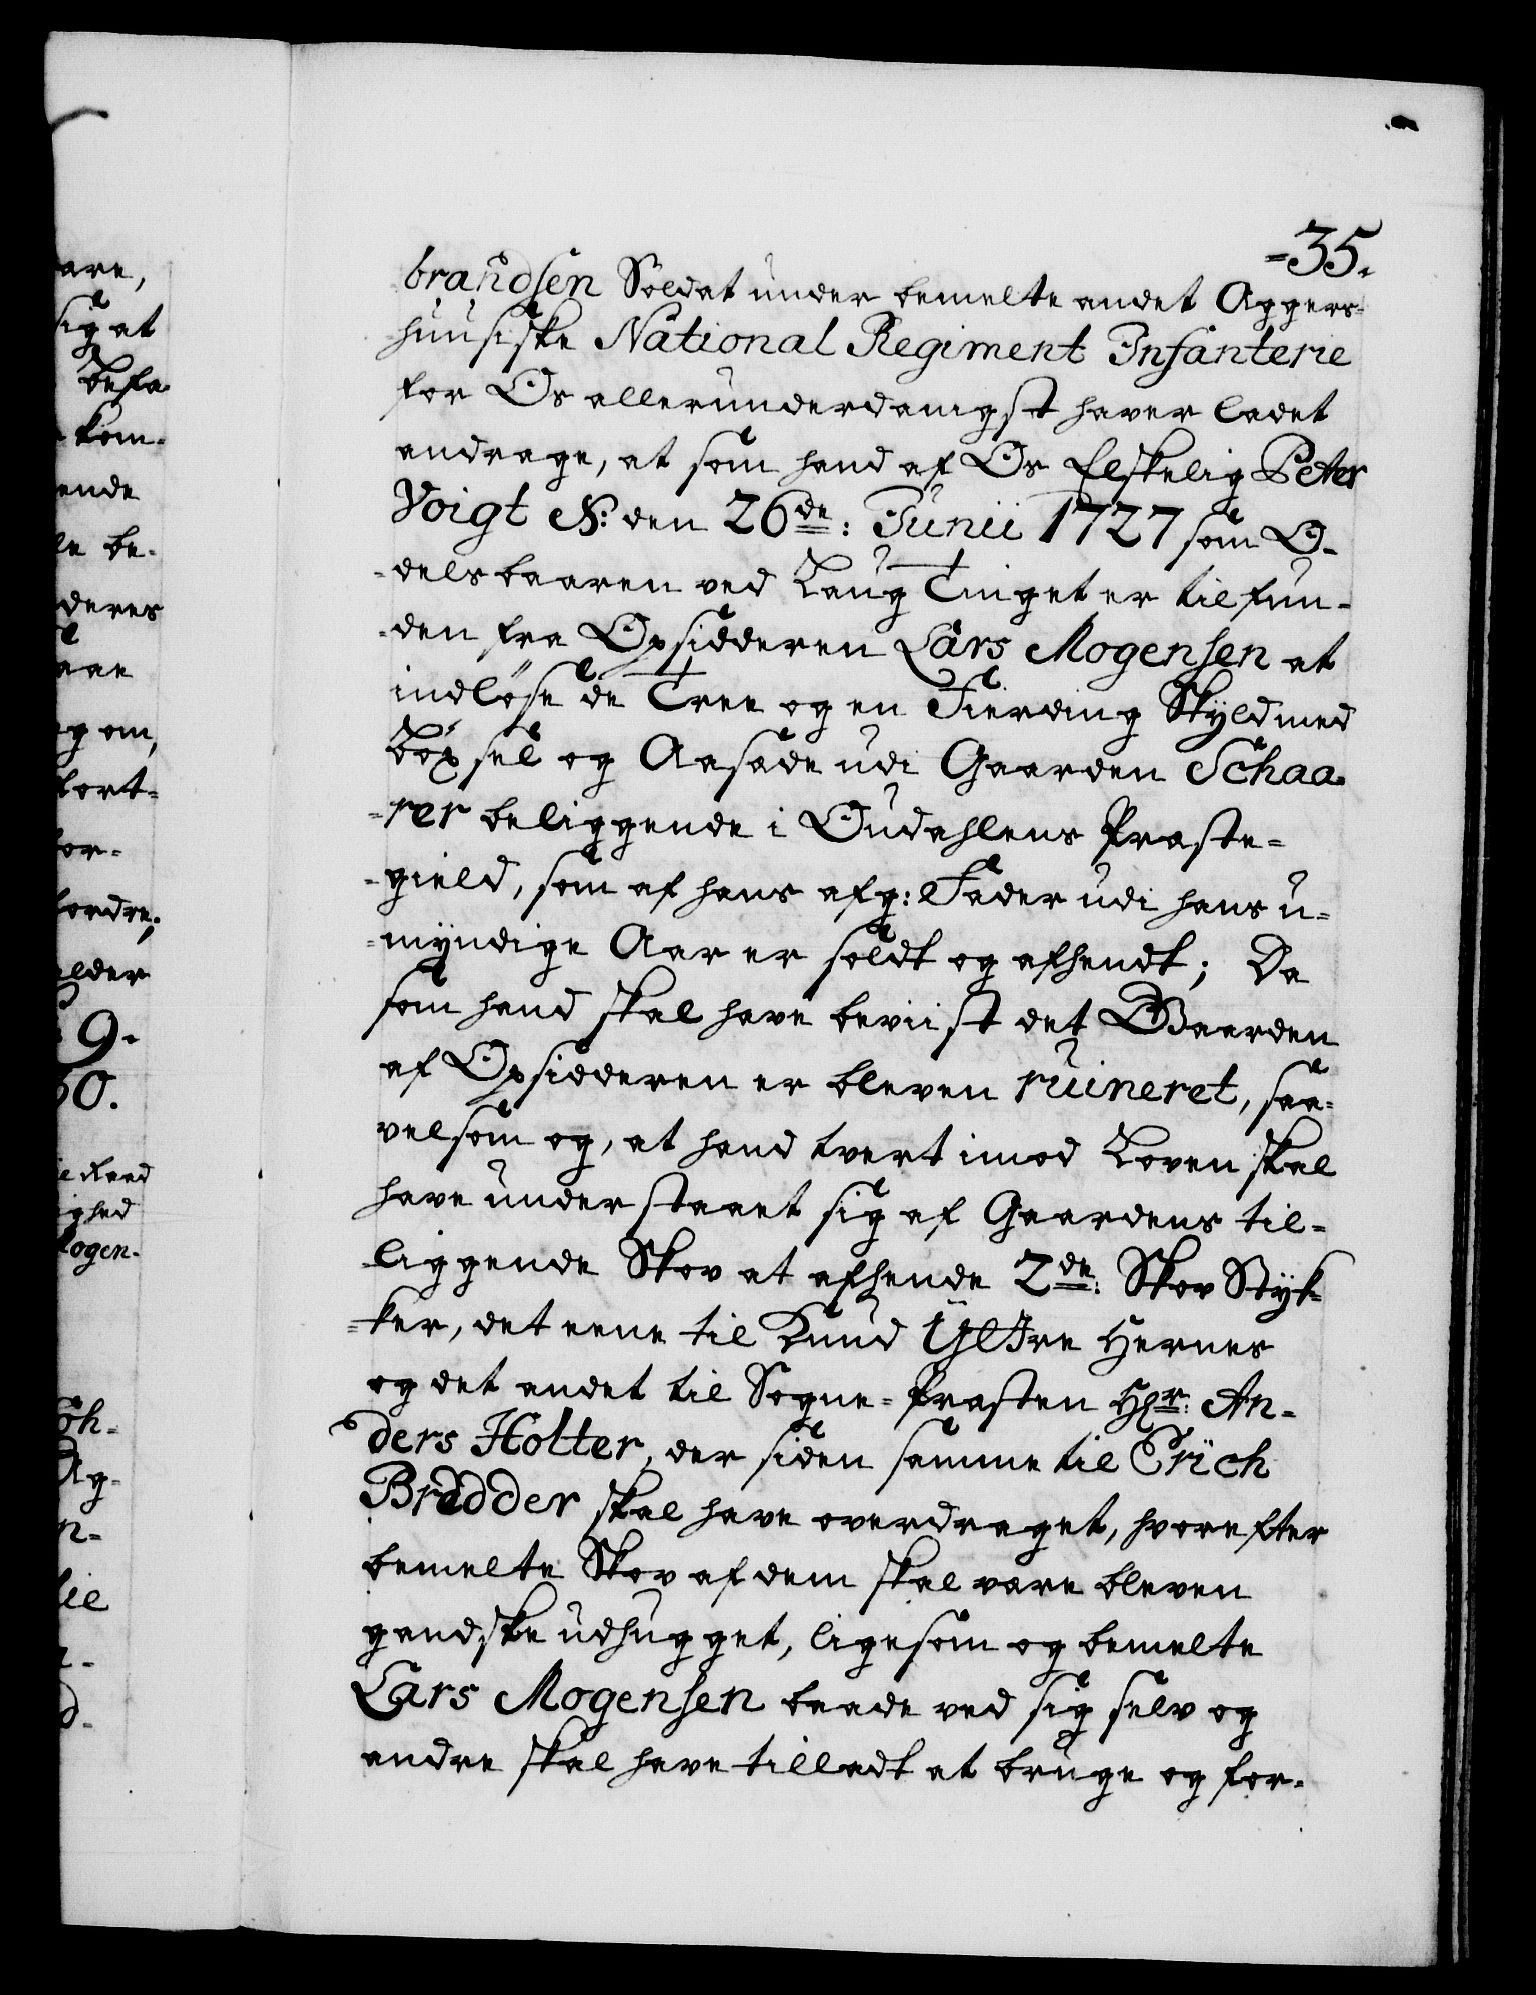 -35.
brandsen Soldat under bemelte andet Aggers-
huusiske National Regiment Infanterie
for Os allerunderdanigst haver ladet
andrage, at som hand af Os Elskelig Peter
Voigt N: den 26de: Junii 1727 som O-
-delsbaaren ved Laug Tinget er tilfun-
-den fra Opsidderen Lars Mogensen at
indlöse de Tree og en Fierding Skyld med
Böxsel og Aasæde udi Gaarden Schaa-
-rer beliggende i Oudahlens Præste-
-gield, som af hans afg: Fader udi hans u-
-myndige Aar er soldt og afhendt; Da
som hand skal have beviist det Gaarden
af Opsidderen er bleven ruineret, saa-
velsom og, at hand tvert imod Loven skal
have understaaet sig af Gaardens til-
-liggende Skov at afhende 2de: Skov Styk-
-ker, det eene til Knud Yttre Hernes
og det andet til Sogne-Præsten Hr: An-
ders Holter, der siden samme til Erich
Brødder skal have overdraget, hvorefter
bemelte Skov af dem skal være bleven
gandske udhugget, ligesom og bemelte
Lars Mogensen baade ved sig selv og
andre skal have tilladt at bruge og for-
are,
sig at
Befa-
kom-
ende
le be-
deres
aae
g om,
fort-
for-
fordre;
elder
9.
60.
Raad
ghed
Mogen-
öh-
Ag-
n-
lie
d-